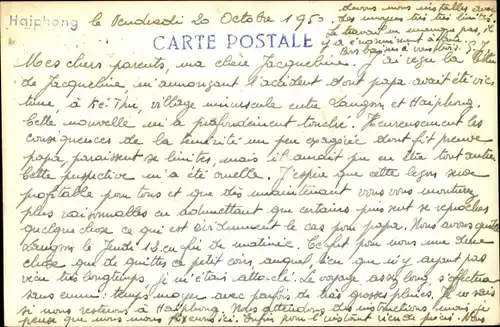 Haiphong le Vendredi 20 Octobre 1950.
devons nous installer avec
des moyens très très limités.
Le travail ne manque pas, il
y a énormément à faire.
Bons baisers à vous trois.
CARTE POSTALE
Mes chers parents, ma chère Jacqueline. J'ai reçu la lettre
de Jacqueline, m'annonçant l'accident dont papa avait été vic
time, à village minuscule entre Langson et Haiphong.
Cette nouvelle m'a profondément touché. Heureusement les
conséquences de la témérité un peu exagérée dont fit preuve
papa, paraissent se limiter, mais il aurait pu en être tout autre.
Cette perspective m'a été cruelle. J'espère que cette leçon sera
profitable pour tous et que dès maintenant vous vous montrerez
plus raisonnables en admettant que certains puissent se reprocher
quelque chose ce qui est évidemment le cas pour papa. Nous avons quitté
Langson le Jeudi 13 en fin de matinée. Ce fut pour nous une dure
chose que de quitter ce petit coin, auquel, bien que n'y ayant pas
vécu très longtemps, je m'étais attaché. Le voyage assez long s'effectua
sans ennui: temps moyen avec parfois de très grosses pluies. Je ne sais
si nous resterons à Haiphong. Nous attendons des instructions mais je
pense que nous nous ici. pour l'instant rien de précis. Nous